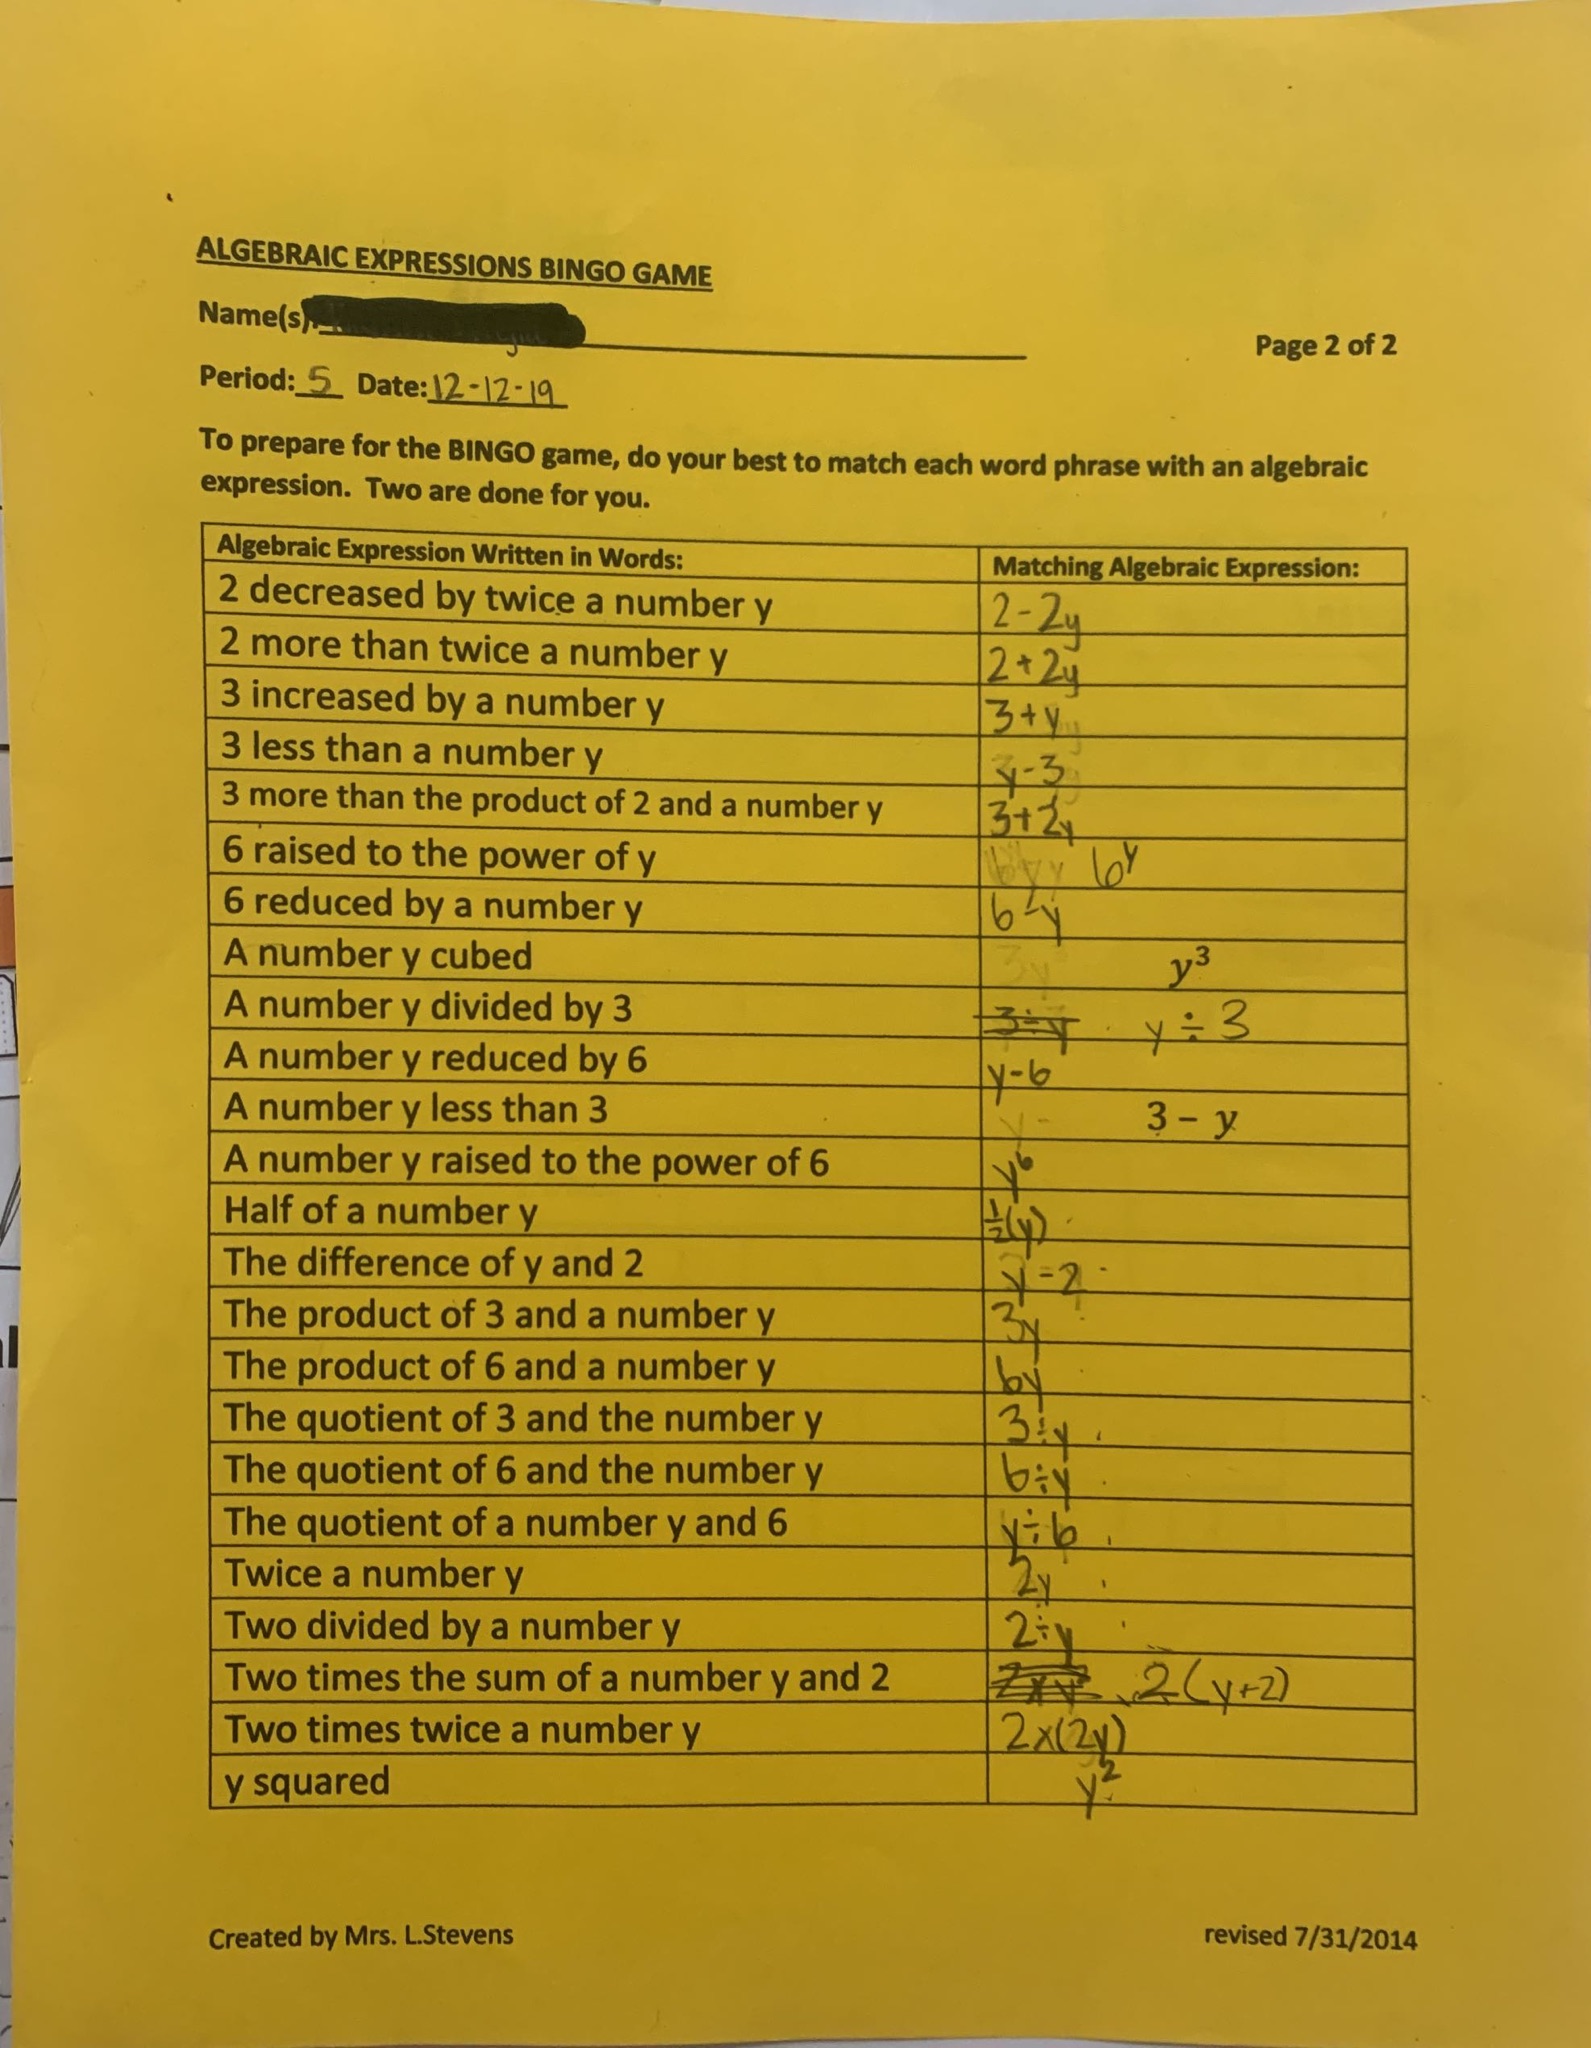 ALGEBRAIC EXPRESSIONS BINGO GAME
Name(s):
Page 2 of 2
Period: 5 Date: 12-12-19
To prepare for the BINGO game, do your best to match each word phrase with an algebraic
expression. Two are done for you.
Algebraic Expression Written in Words: Matching Algebraic Expression:
2 decreased by twice a number y 2-2y
2 more than twice a number y 2+2y
3 increased by a number y 3+y
3 less than a number y y-3
3 more than the product of 2 and a number y 3+2y
6 raised to the power of y 6ʸ
6 reduced by a number y 6-y
A number y cubed y³
A number y divided by 3 3÷y y÷3
A number y reduced by 6 y-6
A number y less than 3 3 – y
A number y raised to the power of 6 y⁶
Half of a number y ½(y)
The difference of y and 2 y-2
The product of 3 and a number y 3y
The product of 6 and a number y 6y
The quotient of 3 and the number y 3÷y
The quotient of 6 and the number y 6÷y
The quotient of a number y and 6 y÷6
Twice a number y 2y
Two divided by a number y 2÷y
Two times the sum of a number y and 2 2(y+2)
Two times twice a number y 2x(2y)
y squared y²
Created by Mrs. L.Stevens revised 7/31/2014